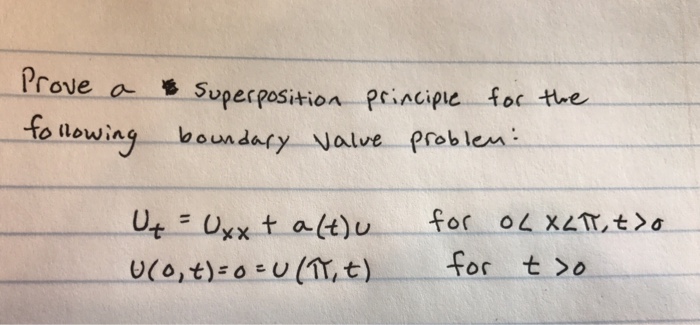 Prove a superposition principle for the
following boundary value problem:
Ut = Uxx + a(t)u for 0<x<π, t>0
U(0,t)=0=U(π,t) for t>0